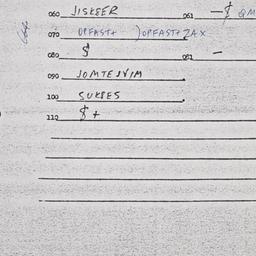 060 JISKSER 061 —$ QM
070 OPFAST+ )OPFAST+ZAX
080 $ 081 —
090 JOMTESVIM
100 SUKSES
110 $+